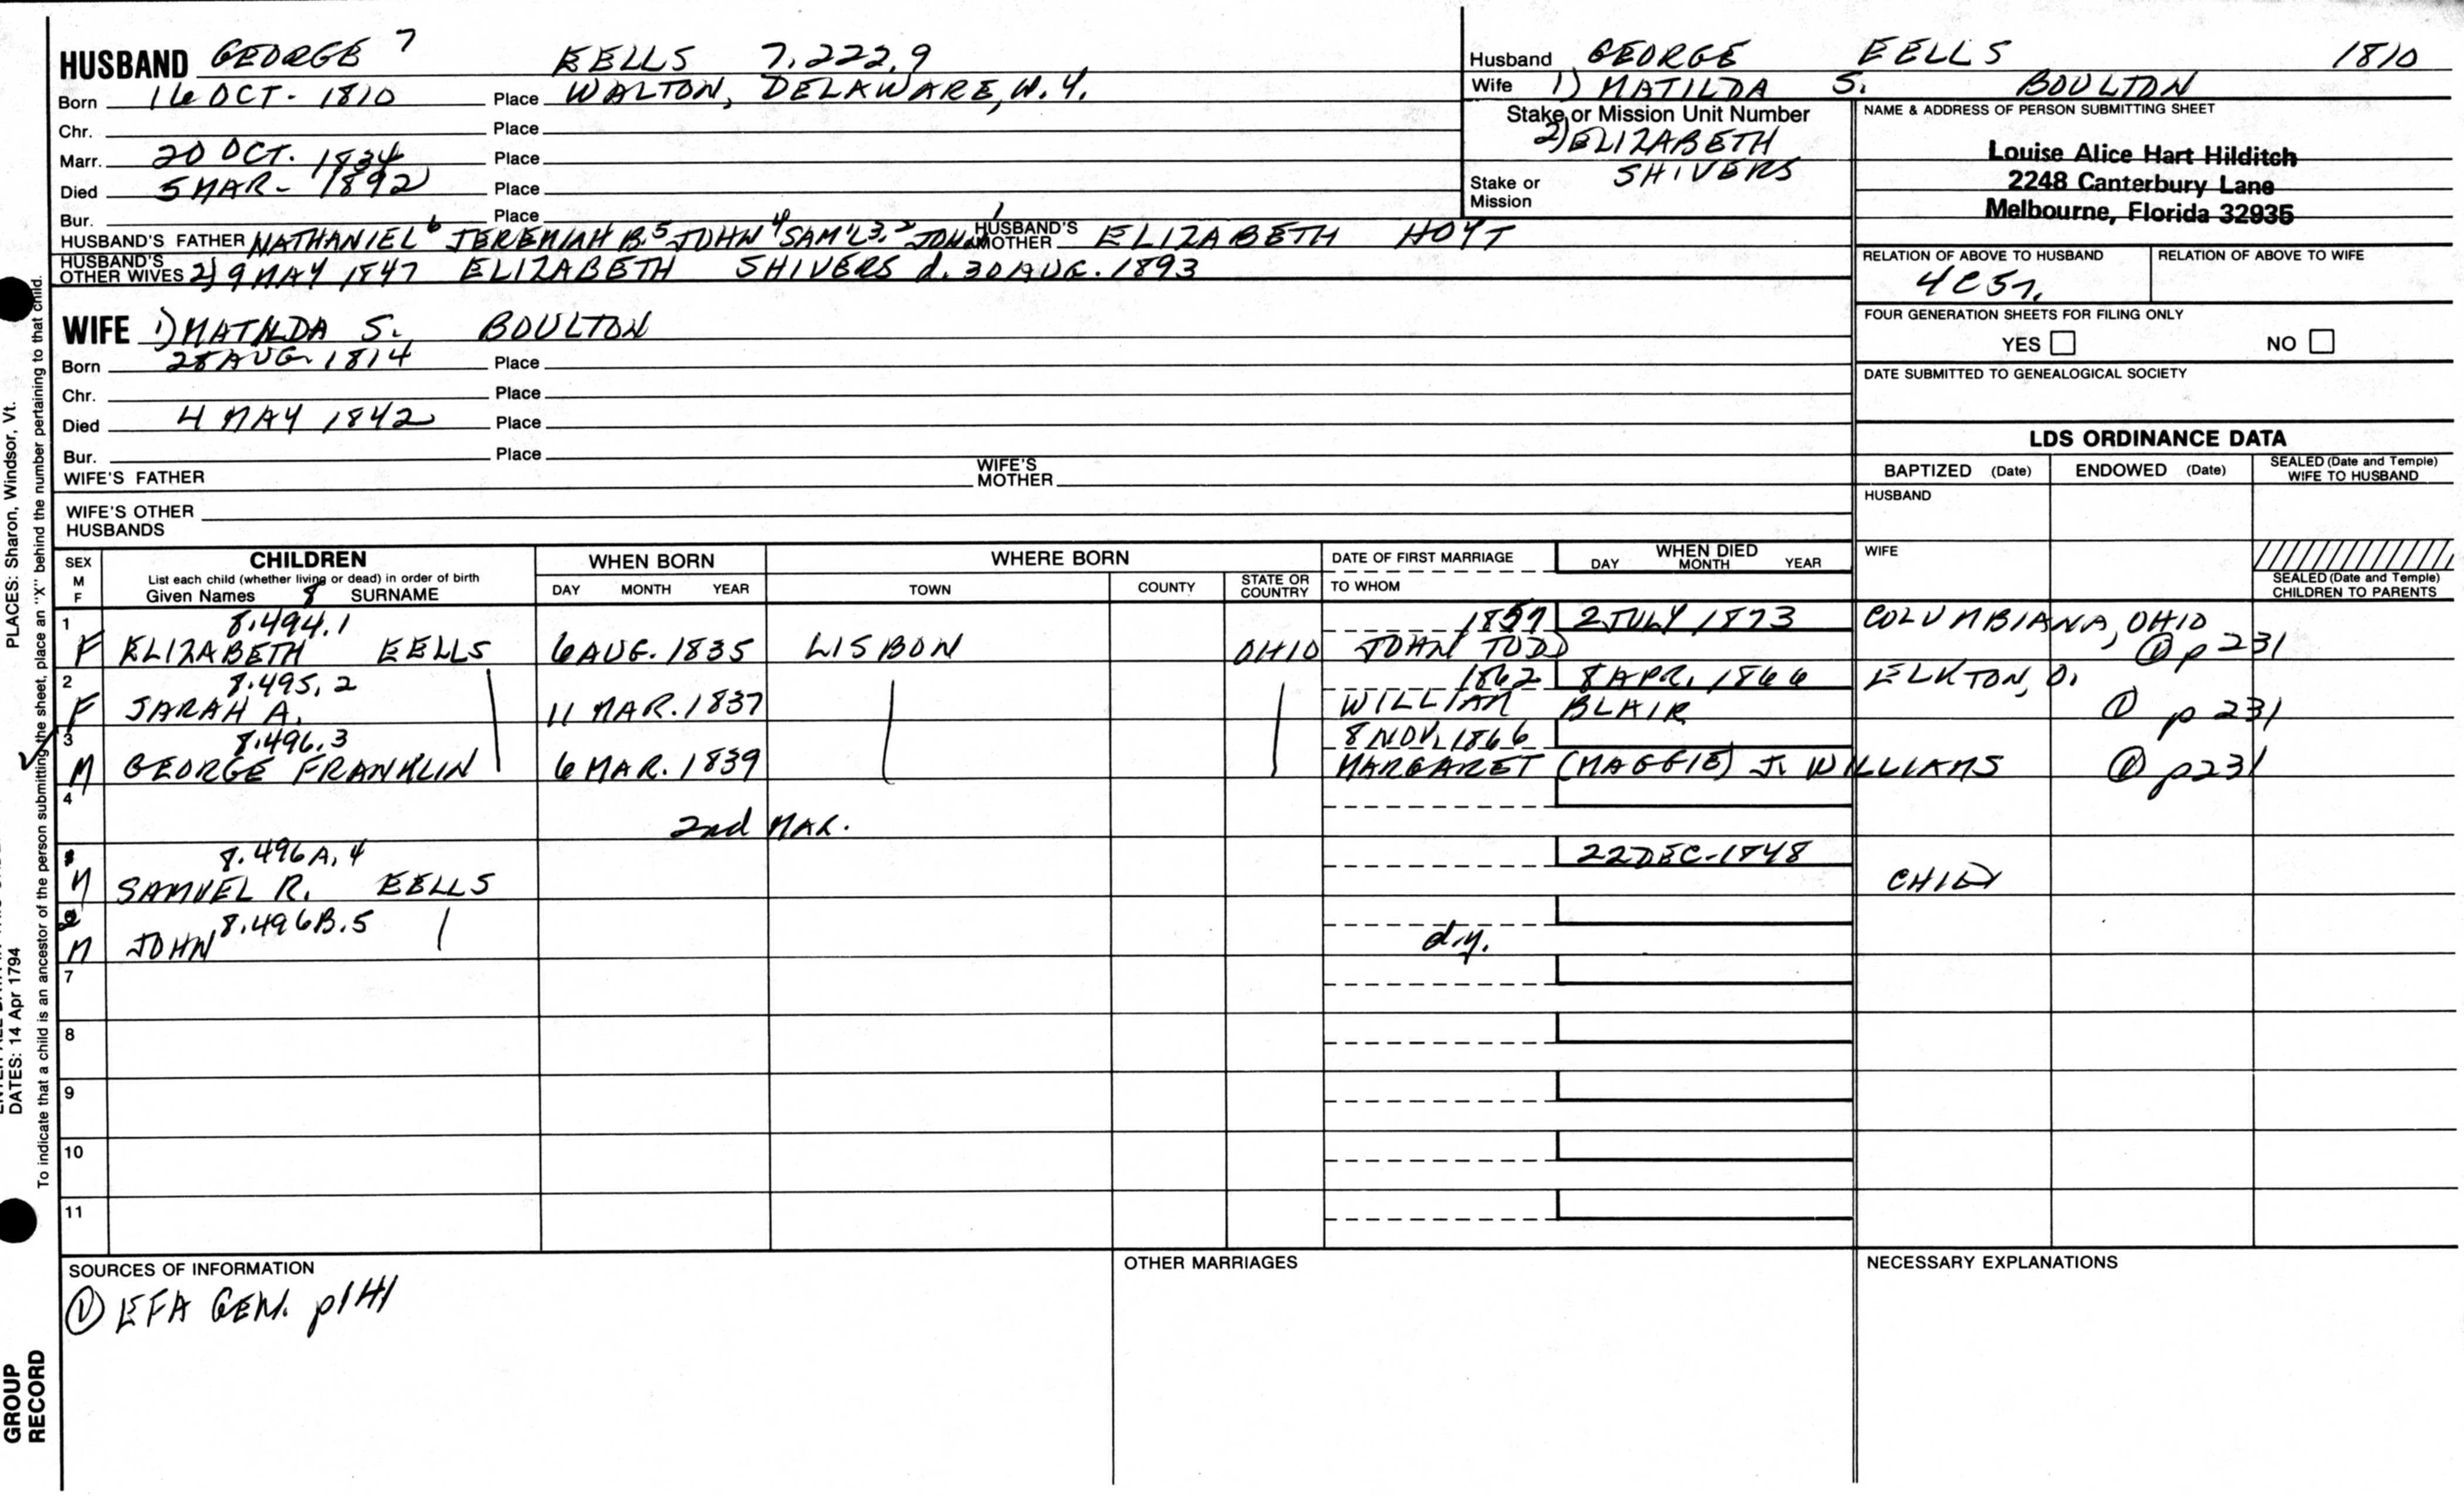 HUSBAND GEORGE 7 EELLS 7.222.9
Born 16 OCT. 1810 Place WALTON, DELAWARE, N.Y.
Chr. Place
Marr. 20 OCT. 1834 Place
Died 5 MAR- 1892 Place
Bur. Place
HUSBAND'S FATHER NATHANIEL 6 JEREMIAH B. 5 JOHN 4 SAM'L 3, 2 JOHN 1 HUSBAND'S MOTHER ELIZABETH HOYT
HUSBAND'S OTHER WIVES 2) 9 MAY 1847 ELIZABETH SHIVERS d. 30 AUG. 1893
Husband GEORGE EELLS 1810
Wife 1) MATILDA S. BOULTON
Stake or Mission Unit Number
2) ELIZABETH
SHIVERS
Stake or
Mission
NAME & ADDRESS OF PERSON SUBMITTING SHEET
Louise Alice Hart Hilditch
2248 Canterbury Lane
Melbourne, Florida 32935
RELATION OF ABOVE TO HUSBAND RELATION OF ABOVE TO WIFE
4C5r.
FOUR GENERATION SHEETS FOR FILING ONLY
YES NO
DATE SUBMITTED TO GENEALOGICAL SOCIETY
WIFE 1) MATILDA S. BOULTON
Born 28 AUG. 1814 Place
Chr. Place
Died 4 MAY 1842 Place
Bur. Place
WIFE'S FATHER WIFE'S MOTHER
WIFE'S OTHER
HUSBANDS
LDS ORDINANCE DATA
BAPTIZED (Date) ENDOWED (Date) SEALED (Date and Temple) WIFE TO HUSBAND
HUSBAND
WIFE
SEALED (Date and Temple)
CHILDREN TO PARENTS
SEX M F
CHILDREN
List each child (whether living or dead) in order of birth
Given Names 8 SURNAME
WHEN BORN
DAY MONTH YEAR
WHERE BORN
TOWN COUNTY STATE OR COUNTRY
DATE OF FIRST MARRIAGE
TO WHOM
WHEN DIED
DAY MONTH YEAR
1 8.494.1 1857 2 JULY 1873 COLUMBIANA, OHIO
F ELIZABETH EELLS 6 AUG. 1835 LISBON OHIO JOHN TODD ① p 231
2 8.495.2 1862 8 APR. 1866 ELKTON, O.
F SARAH A. 11 MAR. 1837 WILLIAM BLAIR ① p 231
3 8.496.3 8 NOV. 1866
M GEORGE FRANKLIN 6 MAR. 1839 MARGARET (MAGGIE) J. WILLIAMS ① p231
4
2nd MAR.
8.496A.4 22 DEC-1848
M SAMUEL R. EELLS CHILD
8.496B.5
M JOHN d.y.
7
8
9
10
11
SOURCES OF INFORMATION
① EFA GEN. p141
OTHER MARRIAGES
NECESSARY EXPLANATIONS
PLACES: Sharon, Windsor, Vt.
DATES: 14 Apr 1794
To indicate that a child is an ancestor of the person submitting the sheet, place an "X" behind the number pertaining to that child.
GROUP
RECORD